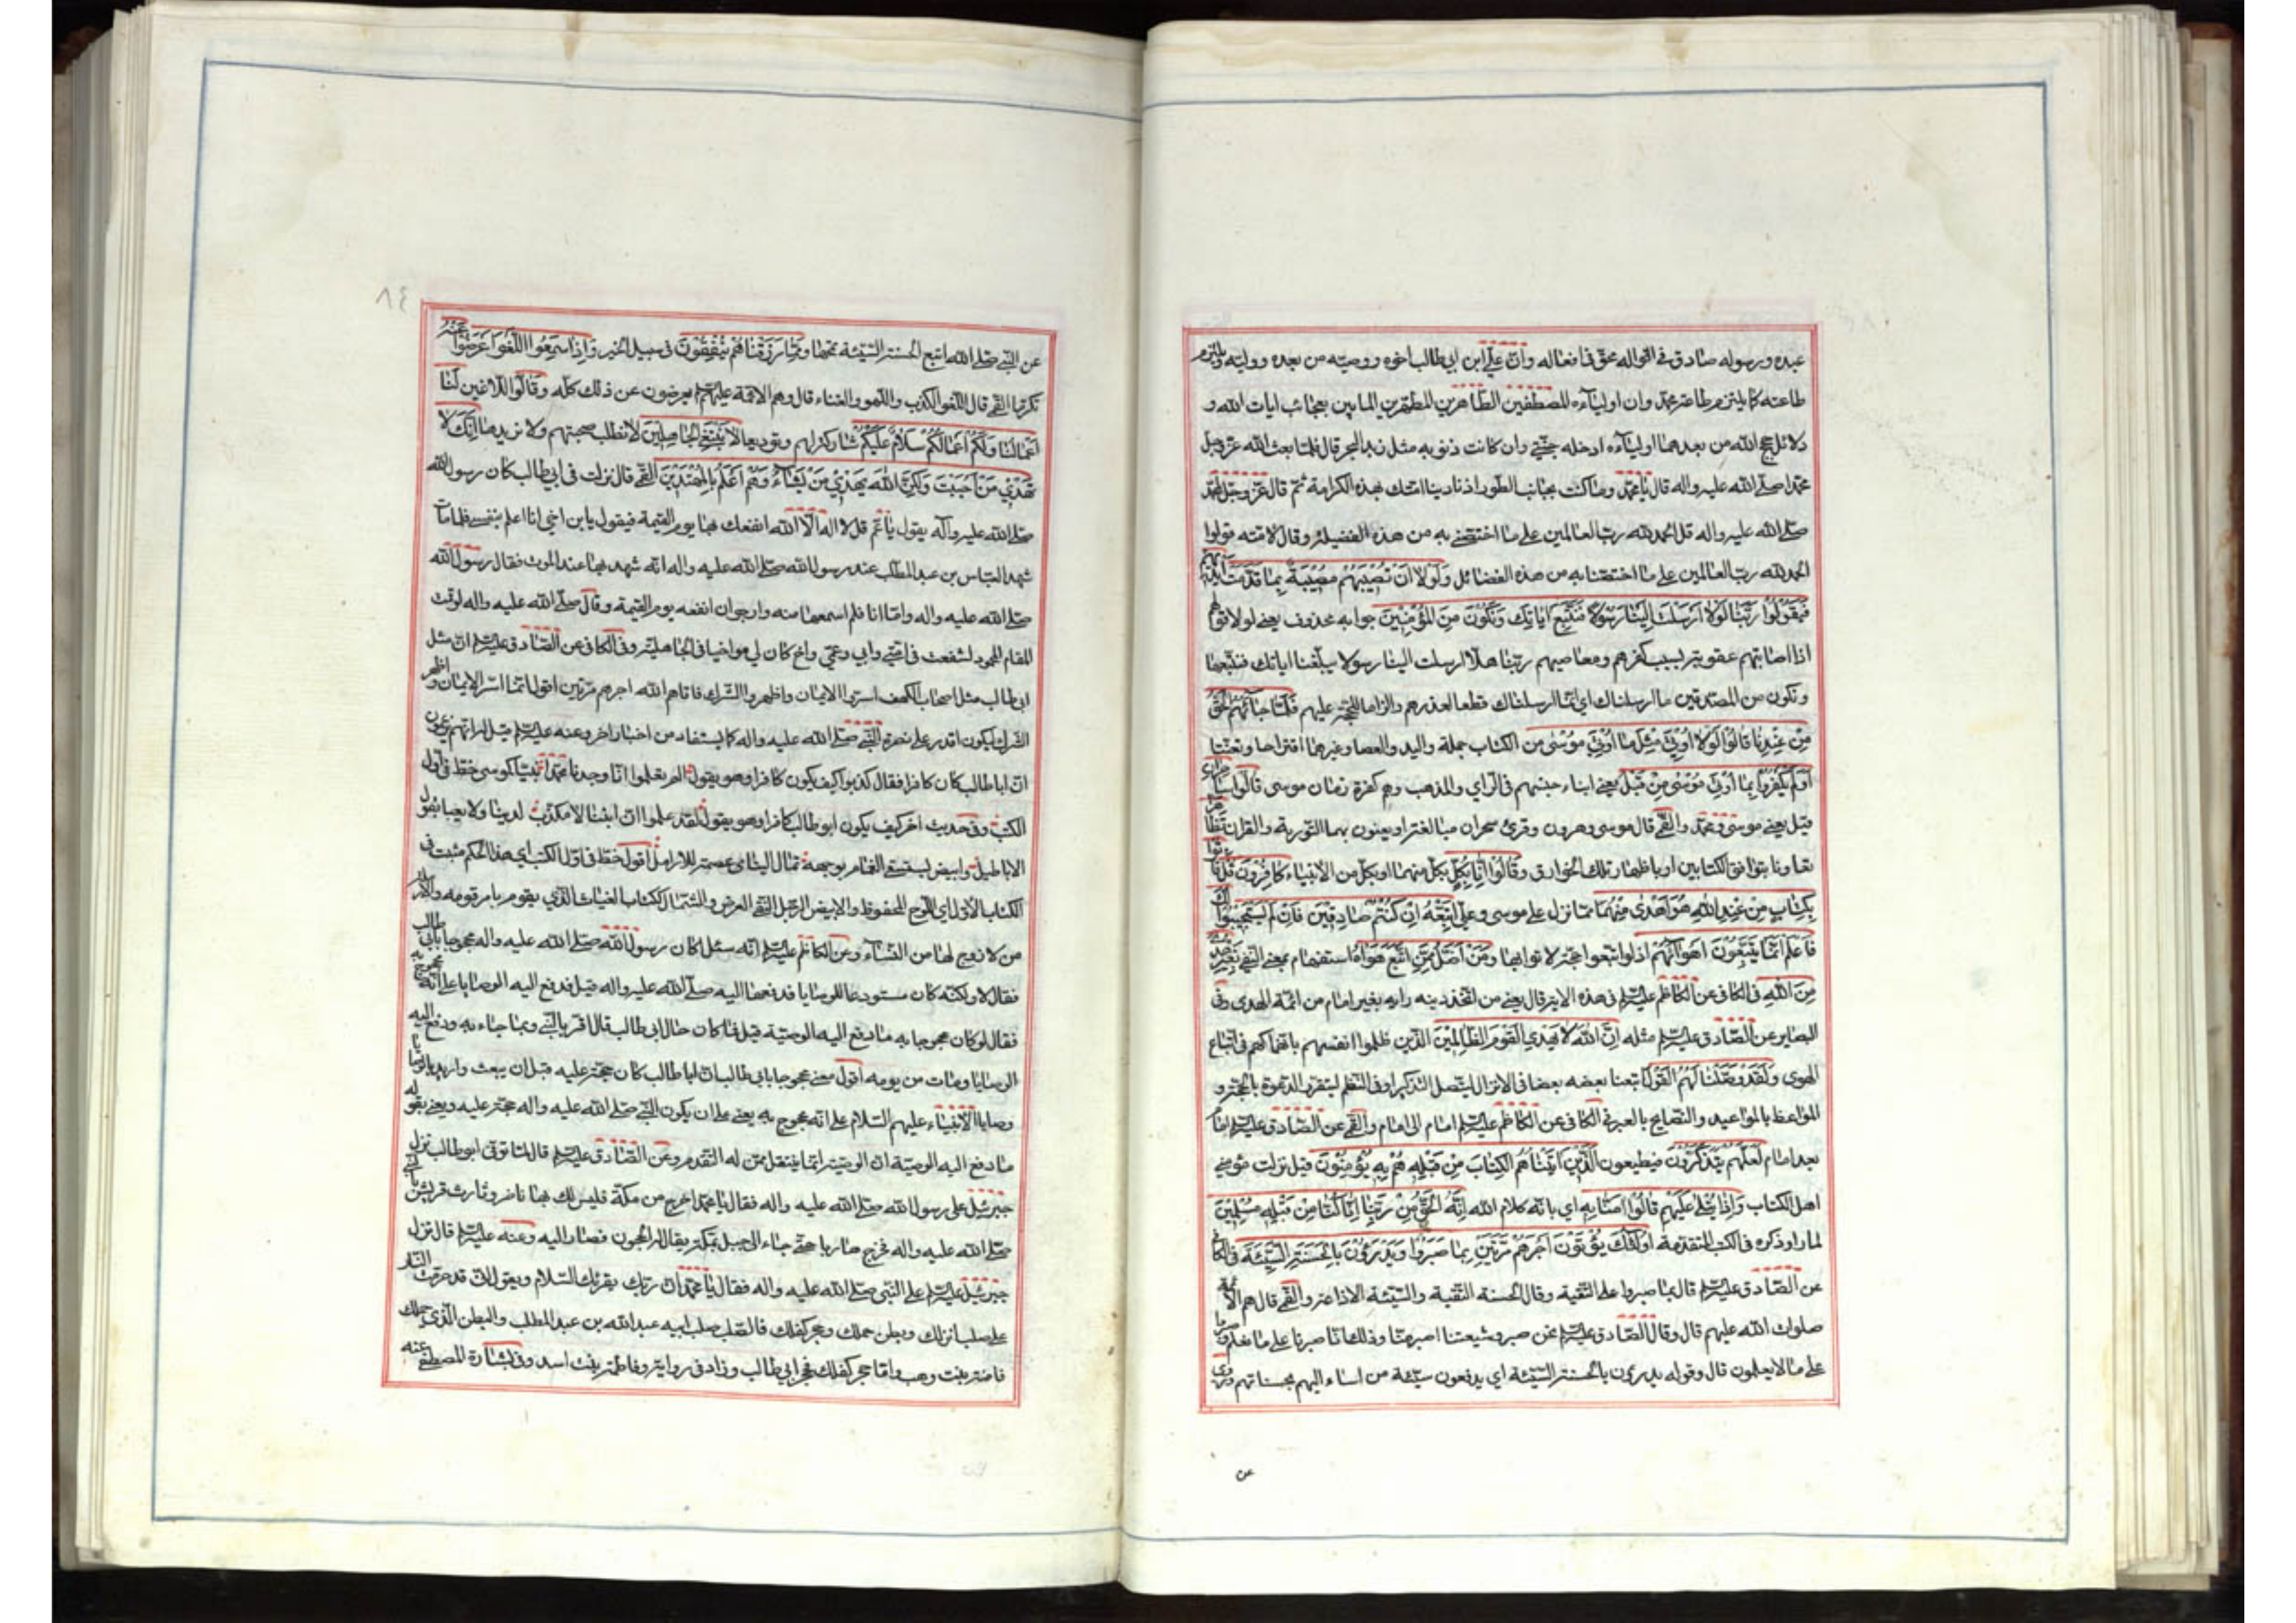 عبده ورسوله صادق في اقواله محق في افعاله وان علي ابن ابي طالب اخوه ووصيه من بعده ووليه ويلتزم
طاعته كما يلتزم طاعة محمد وان اوليآءه المصطفين الطاهرين المطهرين المبابين بعجائب ايات الله و
دلائل حجج الله من بعدهما اوليآءه ادخله جنتي وان كانت ذنوبه مثل زبد البحر قال فلما بعث الله عز وجل
محمدا صلى الله عليه واله قال يا محمد وما كنت بجانب الطور اذ نادينا امتك بهذه الكرامة ثم قال عز وجل لمحمد
صلى الله عليه واله قل الحمد لله رب العالمين على ما اختصني به من هذه الفضيلة وقال لامته قولوا
الحمد لله رب العالمين على ما اختصنا به من هذه الفضائل وَلَوْلا اَنْ تُصيبَهُمْ مُصيبَةٌ بِما قَدَّمَتْ اَيْديهِمْ
فَيَقُولُوا رَبَّنا لَوْلا اَرْسَلْتَ اِلَيْنا رَسُولاً فَنَتَّبِعَ اياتِكَ وَنَكُونَ مِنَ المُؤْمِنينَ جوابه محذوف يعني لولا قولهم
اذا اصابتهم عقوبة بسبب كفرهم ومعاصيهم ربنا هلا ارسلت الينا رسولا يبلغنا اياتك فنتبعها
ونكون من المصدقين ما ارسلناك اي انما ارسلناك قطعا لعذرهم والزاما للحجة عليهم فَلَمّا جاءَهُمُ الْحَقُّ
مِنْ عِنْدِنا قالُوا لَوْلا اُوتِيَ مِثْلَ ما اُوتِيَ مُوسى من الكتاب جملة واليد والعصا وغيرهما اقتراحا وتعنتا
اَوَلَمْ يَكْفُرُوا بِما اُوتِيَ مُوسى مِنْ قَبْلُ يعني ابناء جنسهم في الراي والمذهب وهم كفرة زمان موسى قالُوا ساحران
قيل يعني موسى ومحمد والقمي قال موسى وهرون وقرئ سحران مبالغة او يعنون بهما التورية والقران تَظاهَرا
تعاونا بتوافق الكتابين او باظهار تلك الخوارق وَقالُوا اِنّا بِكُلٍّ بكل منهما او بكل من الانبياء كافِرُونَ قُلْ فَأتُوا
بِكِتابٍ مِنْ عِنْدِ اللهِ هُوَ اَهْدى مِنْهُما مما نزل على موسى وعلي اَتَّبِعْهُ اِنْ كُنْتُمْ صادِقينَ فَاِنْ لَمْ يَسْتَجيبُوا لَكَ
فَاعْلَمْ اَنَّما يَتَّبِعُونَ اَهْواءَهُمْ اذ لو اتبعوا حجة لاتوا بها وَمَنْ اَضَلُّ مِمَّنِ اتَّبَعَ هَواهُ استفهام بمعنى النفي بِغَيْرِ هُدىً
مِنَ اللهِ في الكافي عن الكاظم عليه السلم في هذه الاية قال يعني من اتخذ دينه رايه بغير امام من ائمة الهدى وفي
البصاير عن الصادق عليه السلم مثله اِنَّ اللهَ لا يَهْدِي الْقَوْمَ الظّالِمينَ الذين ظلموا انفسهم بانهماكهم في اتباع
الهوى وَلَقَدْ وَصَّلْنا لَهُمُ الْقَوْلَ اتبعنا بعضه بعضا في الانزال ليتصل التذكير او في النظم ليتقرر الدعوة بالحجة و
المواعظ بالمواعيد والنصايح بالعبر في الكافي عن الكاظم عليه السلم امام الى امام والقمي عن الصادق عليه السلم امام
بعد امام لَعَلَّهُمْ يَتَذَكَّرُونَ فيطيعون اَلَّذينَ اتَيْناهُمُ الْكِتابَ مِنْ قَبْلِهِ هُمْ بِهِ يُؤْمِنُونَ قيل نزلت في مؤمني
اهل الكتاب وَاِذا يُتْلى عَلَيْهِمْ قالُوا امَنّا بِهِ اي بانه كلام الله اِنَّهُ الْحَقُّ مِنْ رَبِّنا اِنّا كُنّا مِنْ قَبْلِهِ مُسْلِمينَ
لما راوا ذكره في الكتب المتقدمة اُولئِكَ يُؤْتَوْنَ اَجْرَهُمْ مَرَّتَيْنِ بِما صَبَرُوا وَيَدْرَؤُنَ بِالْحَسَنَةِ السَّيِّئَةَ في الكافي
عن الصادق عليه السلم قال بما صبروا على التقية وقال الحسنة التقية والسيئة الاذاعة والقمي قال هم الائمة
صلوات الله عليهم قال وقال الصادق عليه السلم نحن صبر وشيعتنا اصبر منا وذلك انا صبرنا على ما نعلم وصبروا
على ما لا يعلمون قال وقوله يدرؤن بالحسنة السيئة اي يدفعون سيئة من اساء اليهم بحسناتهم وروى
عن
٨٤
عن النبي صلى الله اتبع الحسنة السيئة تمحها وَمِمّا رَزَقْناهُمْ يُنْفِقُونَ في سبيل الخير وَاِذا سَمِعُوا اللَّغْوَ اَعْرَضُوا عَنْهُ
تكرما القمي قال اللغو الكذب واللهو والغناء قال وهم الائمة عليهم السلم يعرضون عن ذلك كله وَقالُوا للاغين لَنا
اَعْمالُنا وَلَكُمْ اَعْمالُكُمْ سَلامٌ عَلَيْكُمْ متاركة لهم وتوديعا لا نَبْتَغِي الْجاهِلينَ لا نطلب صحبتهم ولا نريدها اِنَّكَ لا
تَهْدي مَنْ اَحْبَبْتَ وَلكِنَّ اللهَ يَهْدي مَنْ يَشاءُ وَهُوَ اَعْلَمُ بِالْمُهْتَدينَ القمي قال نزلت في ابي طالب كان رسول الله
صلى الله عليه وآله يقول يا عم قل لا اله الا الله انفعك بها يوم القيمة فيقول يا بن اخي انا اعلم بنفسي فلما مات
شهد العباس بن عبد المطلب عند رسول الله صلى الله عليه واله انه شهد بها عند الموت فقال رسول الله
صلى الله عليه واله واما انا فلم اسمعها منه وارجو ان انفعه يوم القيمة وقال صلى الله عليه واله لو قمت
المقام المحمود لشفعت في امي وابي وعمي واخ كان لي مواخيا في الجاهلية وفي الكافي عن الصادق عليه السلم ان مثل
ابي طالب مثل اصحاب الكهف اسروا الايمان واظهروا الشرك فاتاهم الله اجرهم مرتين اقول انما اسر الايمان واظهر
الشرك ليكون اقدر على نصرة النبي صلى الله عليه واله كما يستفاد من اخبار اخر وعنه عليه السلم قيل له انهم يزعمون
ان ابا طالب كان كافرا فقال كذبوا كيف يكون كافرا وهو يقول الم تعلموا انا وجدنا محمدا نبيا كموسى خط في اول
الكتب وفي حديث اخر كيف يكون ابو طالب كافرا وهو يقول لقد علموا ان ابننا لا مكذب لدينا ولا يعبا بقول
الاباطيل وابيض يستسقى الغمام بوجهه ثمال اليتامى عصمة للارامل اقول خط في اول الكتب اي هذا الحكم مثبت في
الكتاب الاول اي اللوح المحفوظ والابيض الرجل النقي العرض والثمال ككتاب الغياث الذي يقوم بامر قومه والارامل
من لا زوج لها من النساء وعن الكاظم عليه السلم انه سئل اكان رسول الله صلى الله عليه واله محجوجا بابي طالب
فقال لا ولكنه كان مستودعا للوصايا فدفعها اليه صلى الله عليه واله قيل فدفع اليه الوصايا على انه محجوج به
فقال لو كان محجوجا به ما دفع اليه الوصية قيل فما كان حال ابي طالب قال اقر بالنبي وبما جاء به ودفع اليه
الوصايا ومات من يومه اقول معنى محجوجا بابي طالب ان ابا طالب كان حجة عليه قبل ان يبعث واريد بالوصايا
وصايا الانبياء عليهم السلام على انه محجوج به يعني على ان يكون النبي صلى الله عليه واله حجة عليه ويعني بقوله
ما دفع اليه الوصية ان الوصية انما ينتقل ممن له التقدم وعن الصادق عليه السلم قال لما توفي ابو طالب نزل
جبرئيل على رسول الله صلى الله عليه واله فقال يا محمد اخرج من مكة فليس لك بها ناصر وثارت قريش بالنبي
صلى الله عليه واله فخرج هاربا حتى جاء الى جبل بمكة يقال له الحجون فصار اليه وعنه عليه السلم قال نزل
جبرئيل عليه السلم على النبي صلى الله عليه واله فقال يا محمد ان ربك يقرئك السلام ويقول اني قد حرمت النار
على صلب انزلك وبطن حملك وحجر كفلك فالصلب صلب ابيه عبد الله بن عبد المطلب والبطن الذي حملك
فامنة بنت وهب واما حجر كفلك فحجر ابي طالب وزاد في رواية وفاطمة بنت اسد وفي بشارة المصطفى عنه